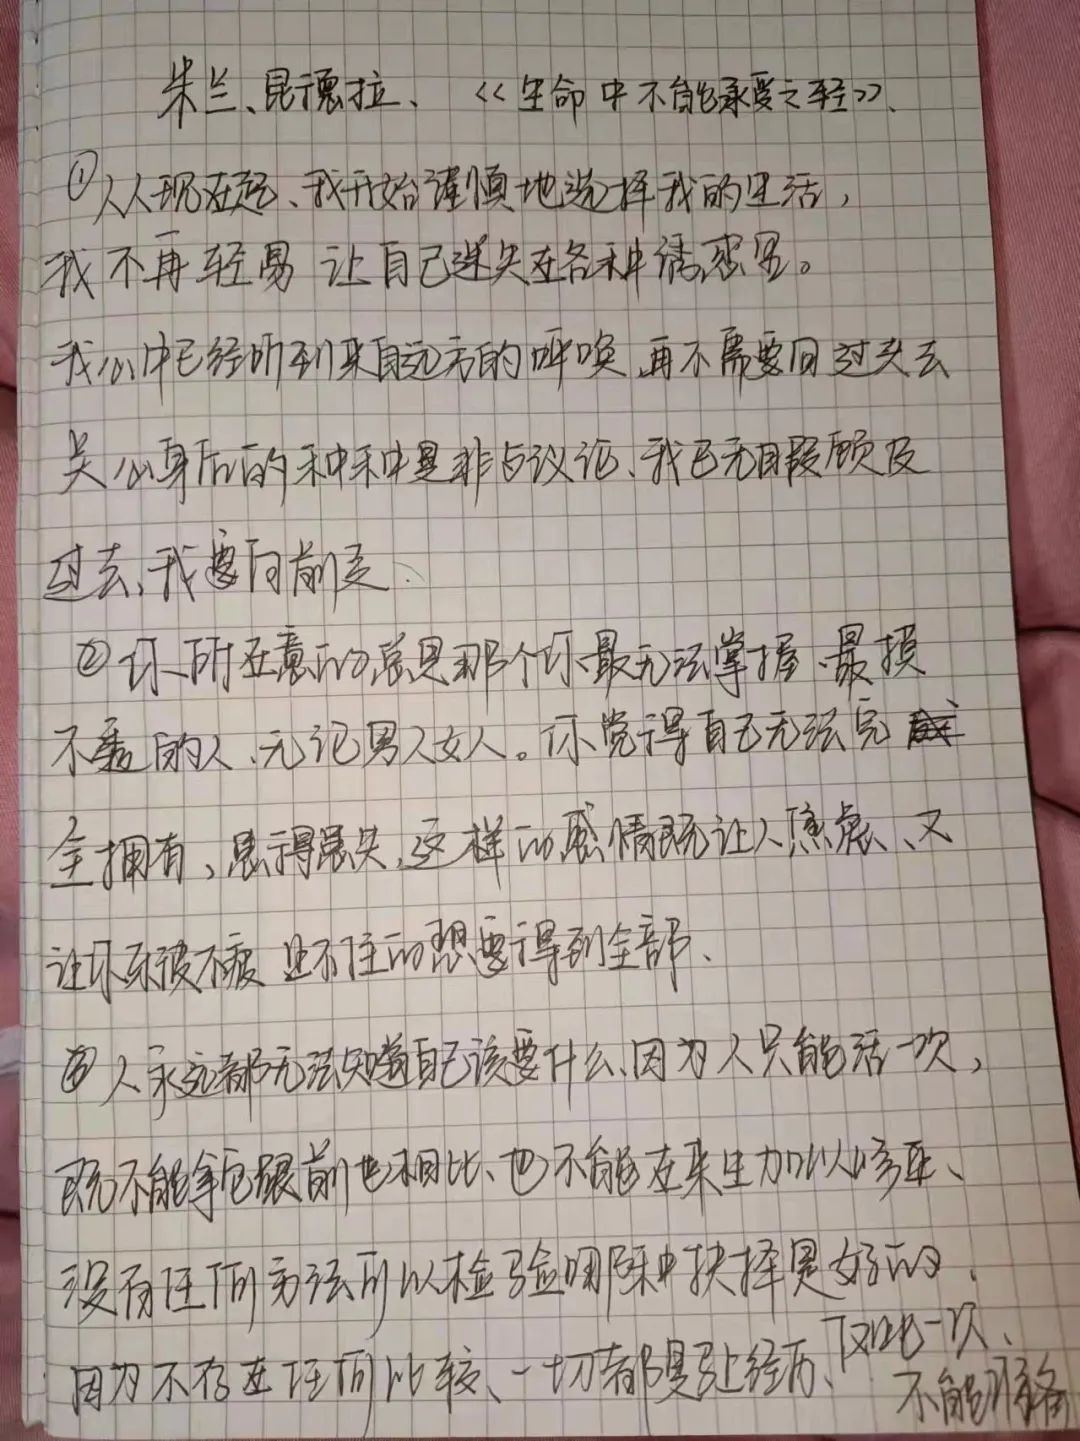 米兰、昆德拉、《生命中不能承受之轻》、
①从现在起、我开始谨慎地选择我的生活，
我不再轻易让自己迷失在各种诱惑里。
我心中已经听到来自远方的呼唤、再不需要回过头去
关心身后的种种是非与议论、我已无暇顾及
过去、我要向前走
②你所在意的总是那个你最无法掌握、最摸
不透的人、无论男人女人。你觉得自己无法完
全拥有，患得患失，这样的感情既让人焦虑、又
让你欲不住的想要得到全部、
③人永远都无法知道自己该要什么、因为人只能活一次，
既不能拿它跟前世相比、也不能在来生加以修正、
没有任何方法可以检验哪种抉择是好的、
因为不存在任何比较、一切都是马上经历、仅此一次、
不能准备